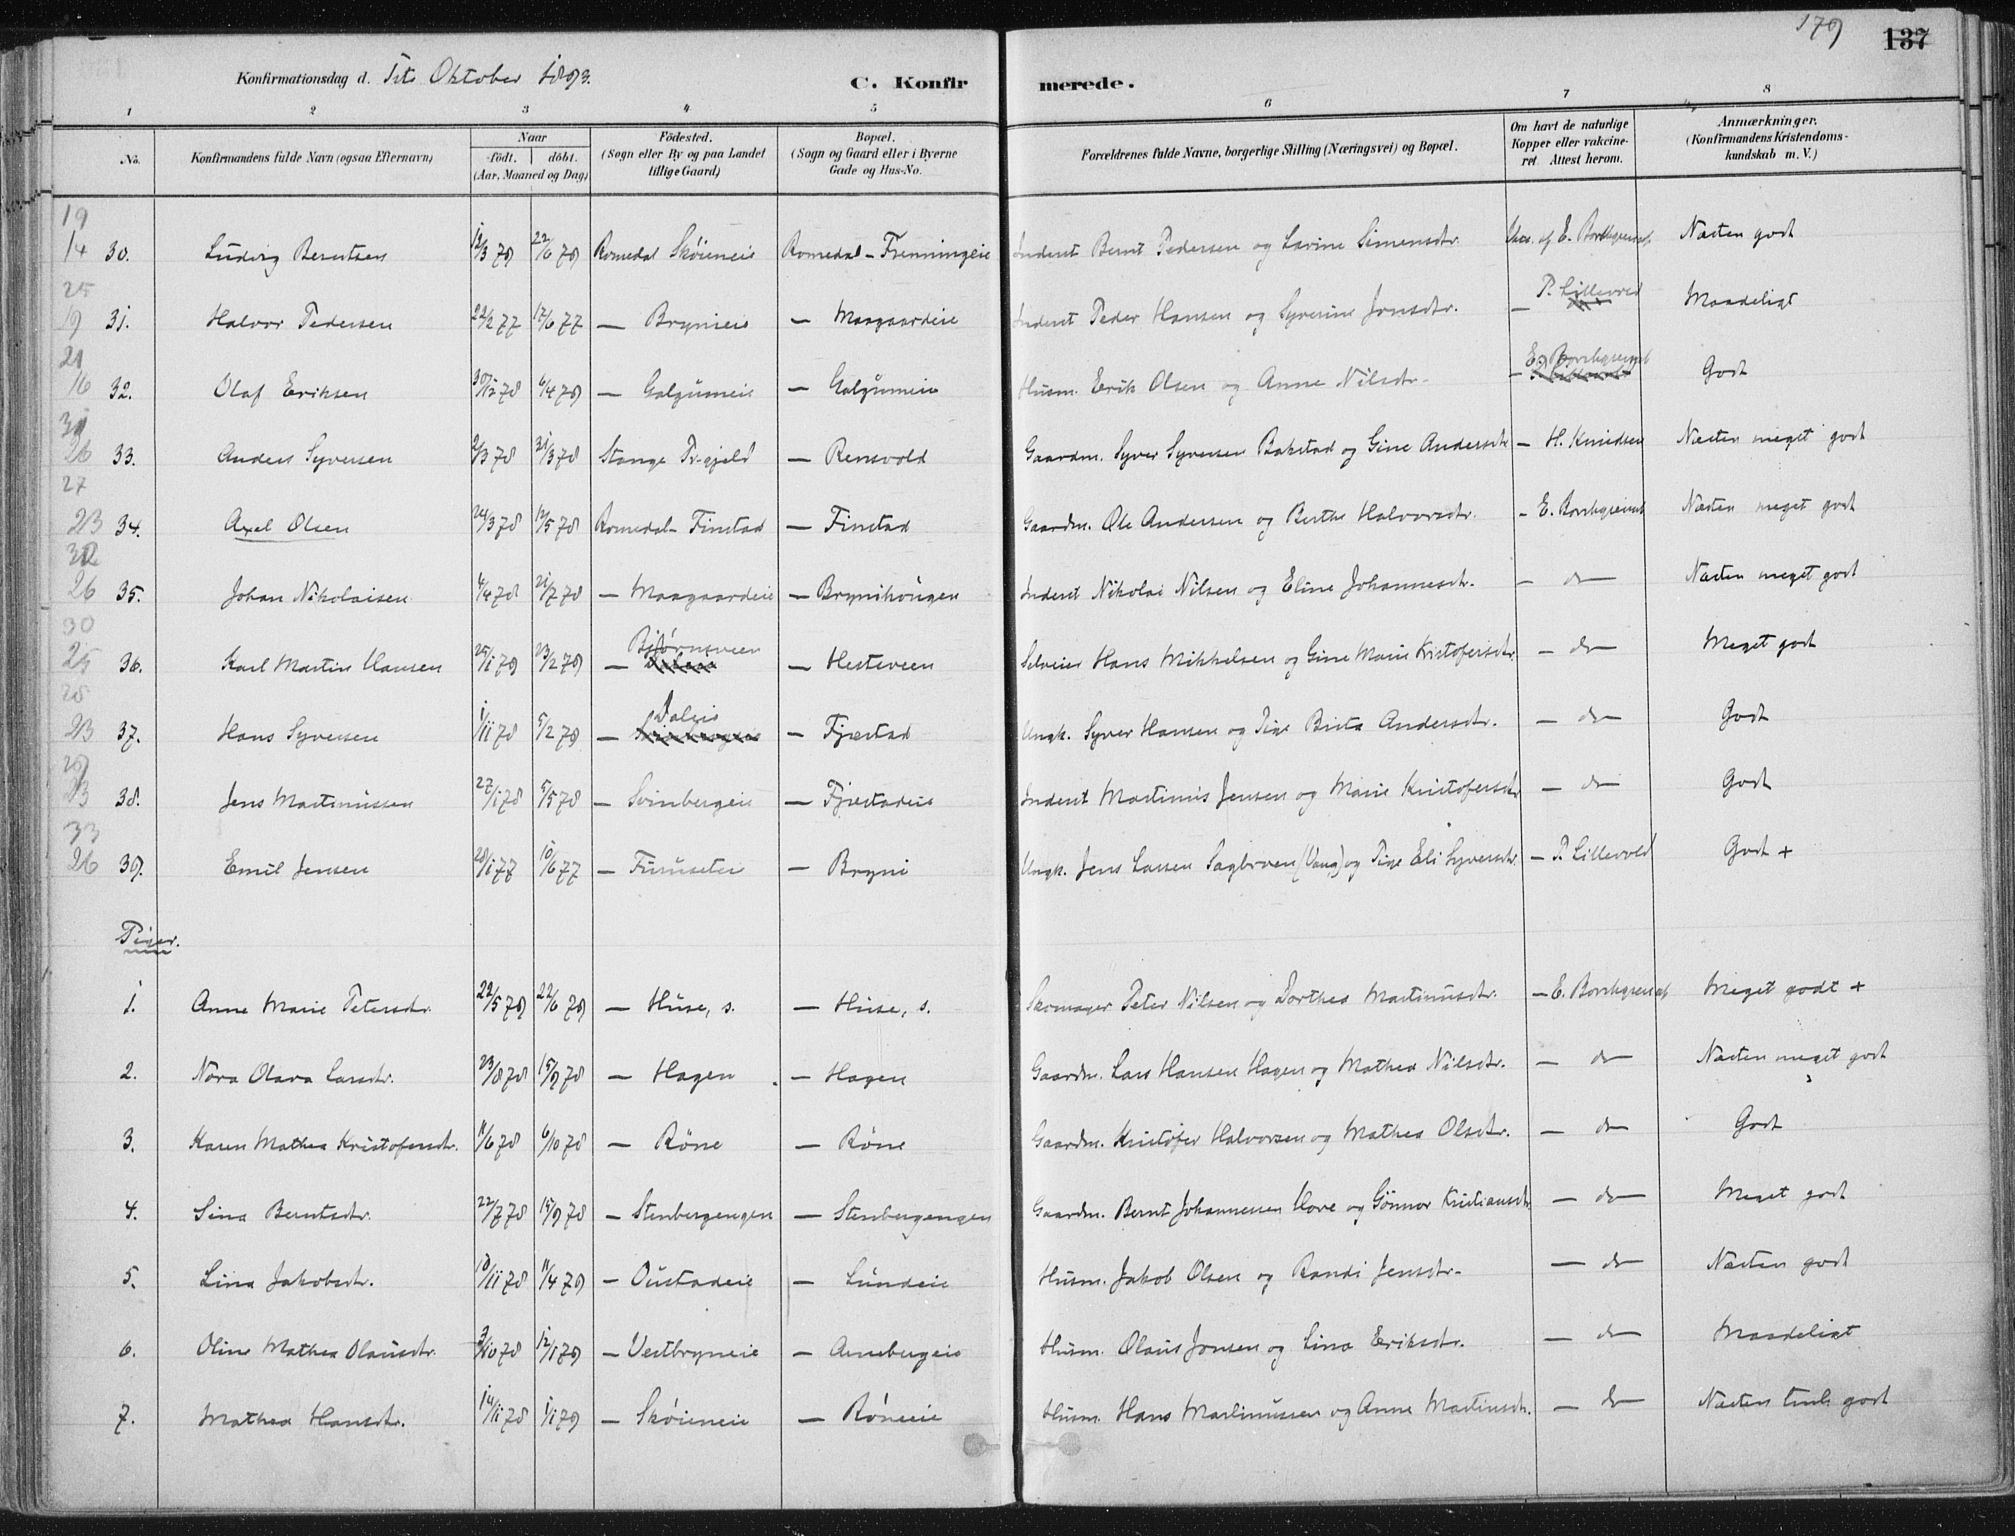 179
137
Konfirmationsdag d. 1ste Oktober 1893.
C. Konfirmerede.
1 2 3 4 5 6 7 8
No. Konfirmandens fulde Navn (ogsaa Efternavn) Naar født. døbt. (Aar, Maaned og Dag) Fødested. (Sogn eller By og paa Landet tillige Gaard) Bopæl. (Sogn og Gaard eller i Byerne Gade og Hus-No. Forældrenes fulde Navne, borgerlige Stilling (Næringsvei) og Bopæl. Om havt de naturlige Kopper eller vakcineret. Attest herom. Anmærkninger. (Konfirmandens Kristendomskundskab m. V.)
19 14 30. Ludvig Berntsen 12/3 79 22/6 79 Romedal Skøieneie Romedal - Frenningeie Inderst Bernt Pedersen og Lovine Simensdtr. Vacc. af E. Borchgrevink Næsten godt
25 19 31. Halvor Pedersen 22/2 77 17/6 77 — Brynieie — Maagaardeie Inderst Peder Hansen og Syverine Jonsdtr. — P. Lillevold Maadeligt
21 16 32. Olaf Eriksen 30/12 78 6/4 79 — Galgumeie — Galgumeie Husm. Erik Olsen og Anne Nilsdtr. — E. Borchgrevink Godt
26 33. Anders Syversen 2/3 78 31/3 78 Stange Pr.gjeld — Rensvold Gaardm. Syver Syversen Bakstad og Gine Andersdtr — H. Knudsen Næsten meget godt
27 23 34. Axel Olsen 24/3 78 12/5 78 Romedal - Finstad — Finstad Gaardm. Ole Andersen og Berthe Halvorsdtr. — E. Borchgrevink Næsten meget godt
32 26 35. Johan Nikolaisen 4/4 78 21/7 78 — Maagaardeie — Brynihaugen Inderst Nikolai Nilsen og Eline Johannesdtr. — do — Næsten meget godt
30 25 36. Karl Martin Hansen 25/1 79 23/2 79 — Bjørnsveen — Hesteveen Selveier Hans Mikkelsen og Gine Marie Kristofersdtr. — do — Meget godt
28 23 37. Hans Syversen 1/11 78 5/2 79 — Daleie — Fjæstad Ungk. Syver Hansen og Pige Berta Andersdtr. — do — Godt
23 38. Jens Martinussen 27/1 78 5/5 78 — Svinbergeie — Fjæstadeie Inderst Martinus Jensen og Marie Kristofersdtr — do — Godt
33 26 39. Emil Jensen 28/1 77 10/6 77 — Furuseter — Bryni Ungk. Jens Larsen Sagbroen (Vang) og Pige Eli Syversdtr. — P. Lillevold Godt +
Piger.
1. Anne Marie Petersdtr. 22/5 79 22/6 79 — Huse, s. — Huse, s. Skomager Peter Nilsen og Dorthea Martinusdtr. — E. Borchgrevink Meget godt +
2. Nora Olava Larsdtr. 23/8 78 15/9 78 — Hagen — Hagen Gaardm. Lars Hansen Hagen og Mathea Nilsdtr. — do — Næsten meget godt
3. Karen Mathea Kristofersdtr. 11/6 78 6/10 78 — Røne — Røne Gaardm. Kristofer Halvorsen og Mathea Olsdtr. — do — Godt
4. Sina Berntsdtr. 22/7 78 15/9 78 — Stenbergengen — Stenbergengen Gaardm. Bernt Johannessen Hove og Gønnor Kristiansdtr. — do — Meget godt
5. Lina Jakobsdtr. 18/11 78 11/4 79 — Oustadeie — Lundeie Husm. Jakob Olsen og Randi Jensdtr. — do — Næsten godt
6. Oline Mathea Olausdtr. 3/10 78 12/1 79 — Vestbryneie — Arnebergeie Husm. Olaus Jonsen og Lina Eriksdtr. — do — Maadeligt
7. Mathea Hansdtr. 14/11 78 1/1 79 — Skøieneie — Røneie Husm. Hans Martinussen og Anne Martinsdtr. — do — Næsten temt. godt